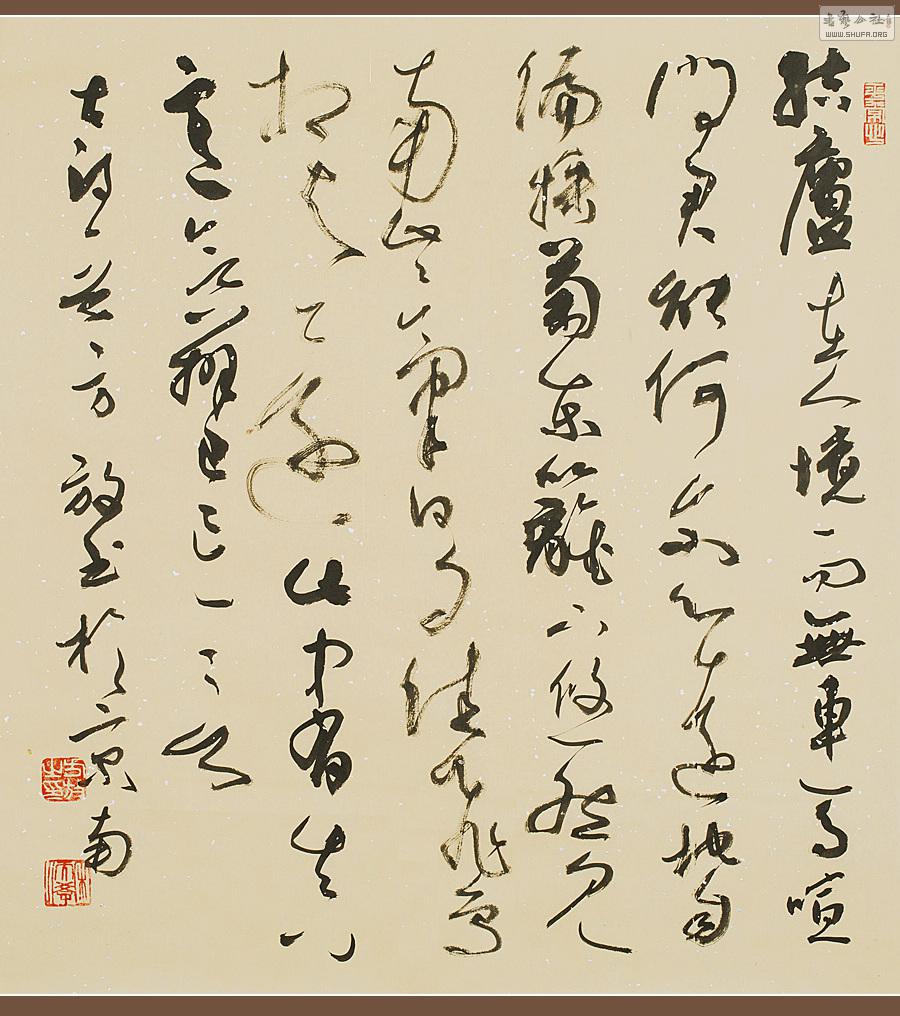 書藝公社
WWW.SHUFA.ORG
結廬在人境而無車馬喧
問君能何尔心遠地自
偏採菊東籬下悠然見
南山山氣日夕佳飛鳥
相與還此中有真
意欲辨已忘言
古詩一首方放書於京南